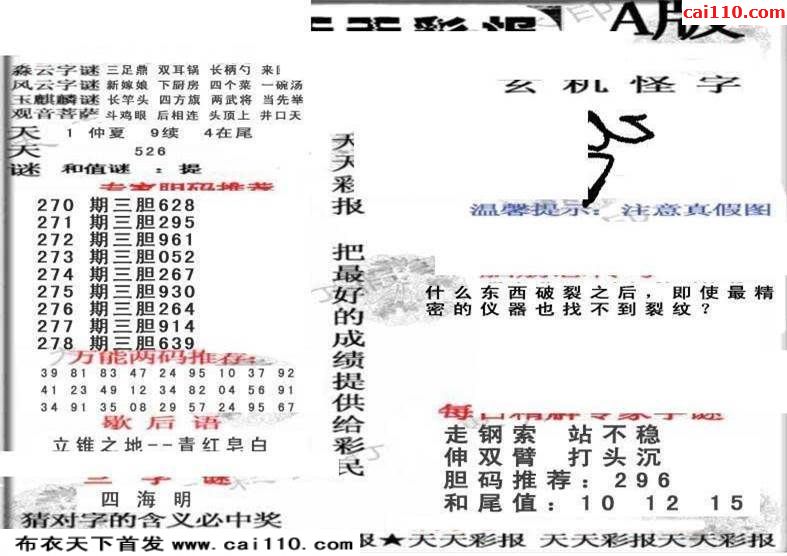 天天彩报 A版
cai110.com
淼云字谜 三足鼎 双耳锅 长柄勺
风云字谜 新嫁娘 下厨房 四个菜 一碗汤
玉麒麟谜 长竿头 四方旗 两武将 当先举
观音菩萨 斗鸡眼 后相连 头顶上 井口天
天 1 仲夏 9续 4在尾
天 526
谜 和值谜 :提
专家胆码推荐
270 期三胆628
271 期三胆295
272 期三胆961
273 期三胆052
274 期三胆267
275 期三胆930
276 期三胆264
277 期三胆914
278 期三胆639
万能两码推荐:
39 81 83 47 24 95 10 37 92
41 23 49 12 34 82 04 56 91
34 91 35 08 29 57 24 95 67
歇后语
立锥之地--青红皂白
三字谜
四海明
猜对字的含义必中奖
布衣天下首发 www.cai110.com
天天彩报 把最好的成绩提供给彩民
玄机怪字
温馨提示: 注意真假图
什么东西破裂之后，即使最精
密的仪器也找不到裂纹？
每日精解专家字谜
走钢索 站不稳
伸双臂 打头沉
胆码推荐:296
和尾值:10 12 15
报★天天彩报 天天彩报天天彩报